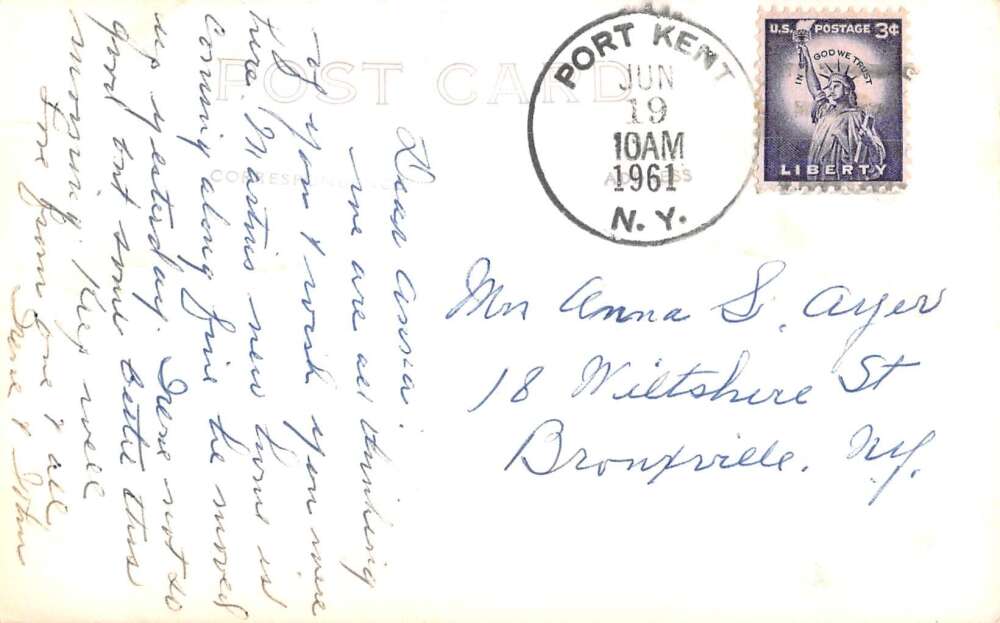 POST CARD
CORRESPONDENCE
ADDRESS
PORT KENT
JUN
19
10AM
1961
N. Y.
U.S. POSTAGE 3¢
IN GOD WE TRUST
LIBERTY
Dear Anna:
we are all thinking
of you & wish you were
here. Martin's new home is
Coming along fine he moved
up yesterday. Irene not so
good but some better this
morning. Keep well
Love from one & all
Irene & John
Mrs Anna S. Ayer
18 Wiltshire St
Bronxville, Ny.